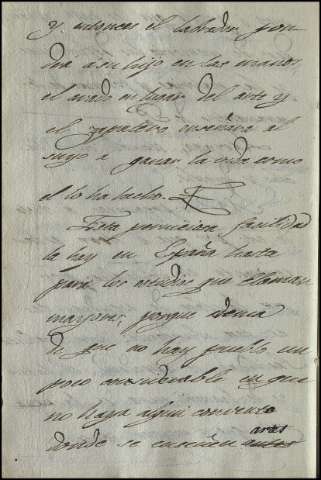 y entonces el labrador, pon-
dra a su hijo en las manos
el arado en lugar del arte y
el zapatero enseñara al
suyo a ganar la vida como
el lo ha hecho.
Esta perniciosa facilidad
la hay en España hasta
para los estudios que llaman
mayores; porque demas
de que no hay pueblo un
poco considerable en que
no haya algun convento
donde se enseñen artes